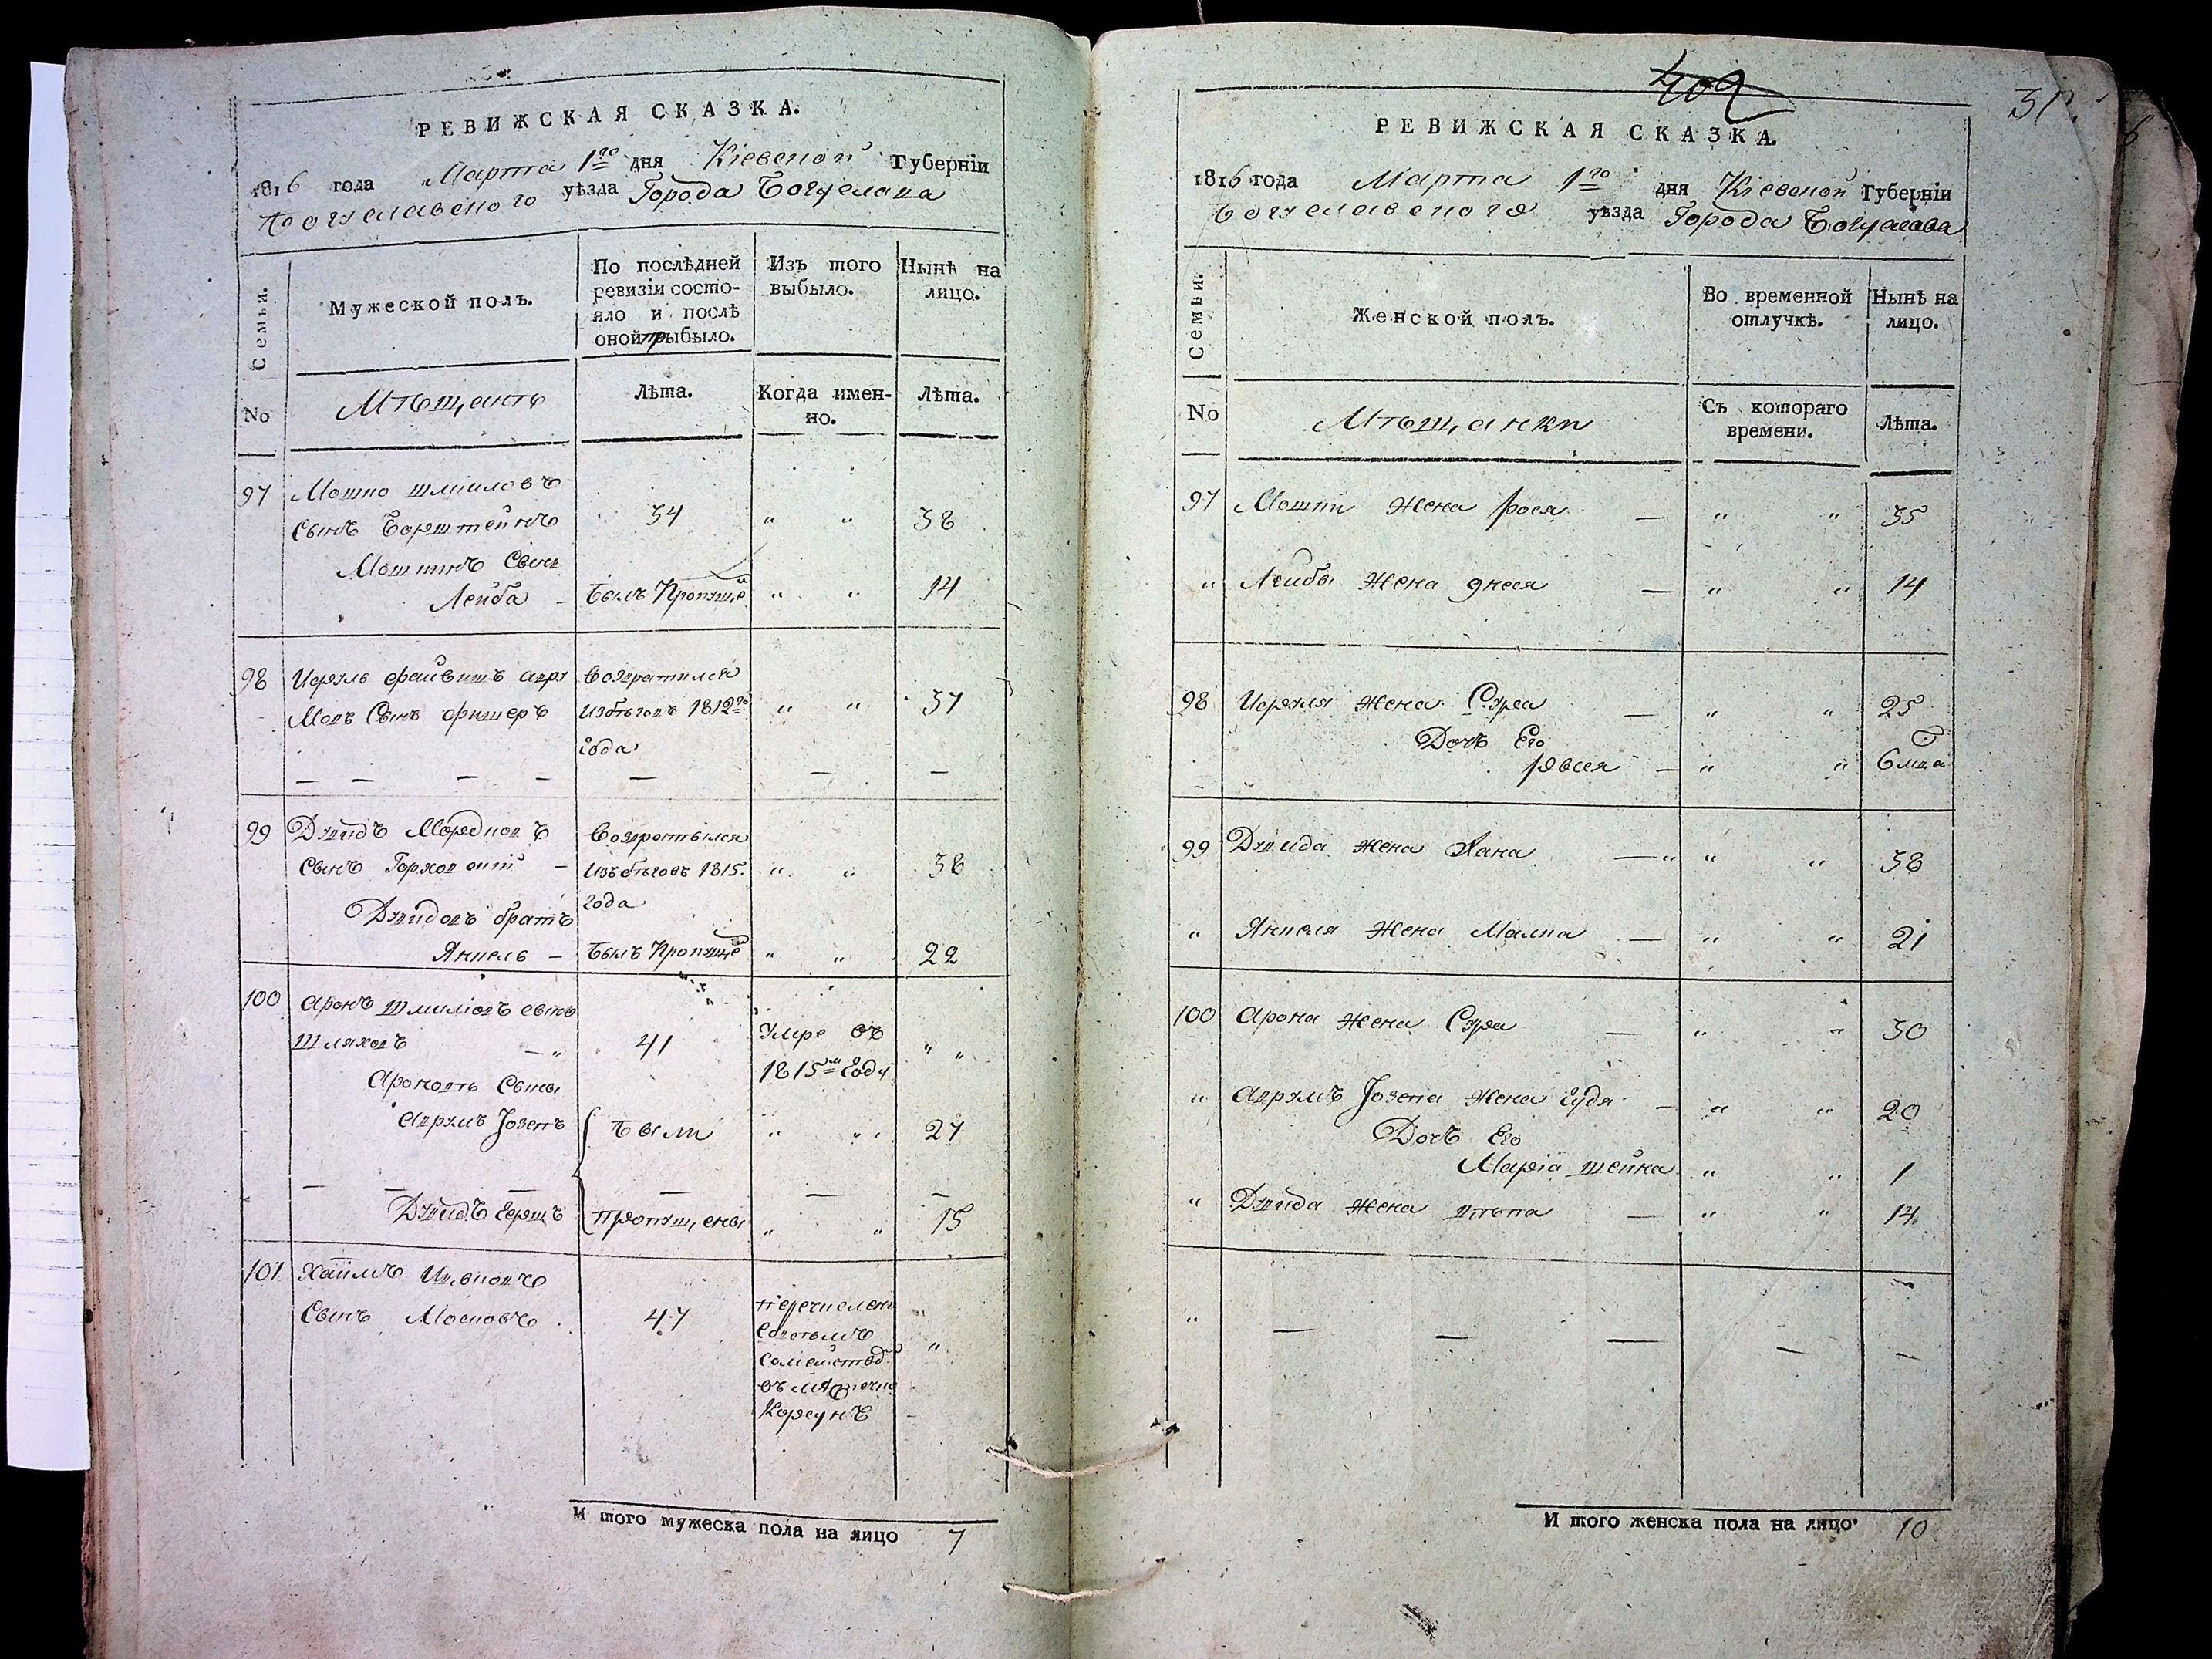 РЕВИЖСКАЯ СКАЗКА.
1816 года Марта 1го дня Кіевской Губерніи
Богуславского уѣзда Города Богуслава
Семья.
Мужеской полъ.
По послѣдней
ревизіи состо-
яло и послѣ
оной прыбыло.
Изъ того
выбыло.
Нынѣ на
лицо.
No
Мѣщанѣ
Лѣта.
Когда имен-
но.
Лѣта.
97 Мошко Шміиловъ
сынъ Борштейнъ 34 " " 38
Мошкинъ Сынъ
Лейба – Былъ Пропуще " " 14
98 Исруль файвишъ авру Возвратился
мовъ Сынъ фишеръ избѣговъ 1812го " " 37
года
99 Дувидъ Мордковъ Возвратылся
сынъ Горхов – Изъ бѣговъ 1815. " " 38
Дувидовъ братъ года
Янкель – Былъ Пропуще " " 22
100 Аронъ Шмиліовъ сынъ
Шляховъ – " 41 Умре въ " "
1815м Году
Ароновы Сыны
Аврумъ Јозепъ были " " 27
Дувидъ Гершъ пропущены " " 15
101 Хаимъ Ицковъ
Сынъ Мосновъ 47 перечисленъ "
своимъ "
семейство
въ мѣстечко
Корсунъ
И того мужеска пола на лицо 7
402
31.
РЕВИЖСКАЯ СКАЗКА.
1816 года Марта 1го дня Кіевской Губерніи
Богуславского уѣзда Города Богуслава
Семьи.
Женской полъ.
Во временной
отлучкѣ.
Нынѣ на
лицо.
No
Мѣщанки
Съ котораго
времени.
Лѣта.
97 Мошки Жена рося – " " 35
" Лейбы Жена Днеся – " " 14
98 Исруля жена Сура – " " 25
Дочъ Его
рввся – " " 6 мца
99 Дувида жена Хана – " " " 38
" Янкеля Жена Малка – " " 21
100 Арона жена Сура – " " 30
" Аврумъ Јозепа жена Гудя – " " 20
Дочъ Его
Маріа шейна " " 1
" Дувида жена – " " 14
"
И того женска пола на лицо. 10